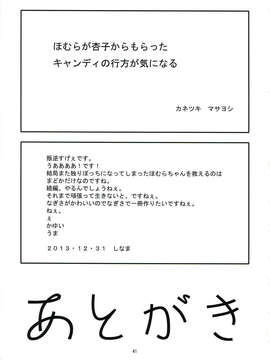 ほむらが杏子からもらった
キャンディの行方が気になる
カネツキ マサヨシ
叛逆すげぇです。
うああああ！です！
結局また独りぼっちになってしまったほむらちゃんを救えるのは
まどかだけなのですね。
続編、やるんでしょうねぇ。
それまで頑張って生きないと、ですねぇ。
なぎさがかわいいのでなぎさで一冊作りたいですねぇ。
ねぇ。
ぇ
かゆい
うま
２０１３・１２・３１ しなま
あとがき
41